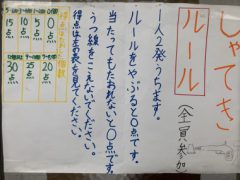 しゃてき
ルール
(全員参加
一人2発うちます。
ルールをやぶると0点です。
当たってもたおれないと0点です。
うつ線をこえないでください。
得点は表を見てください。
0点
5点
10点
15点
20点
25点
30点